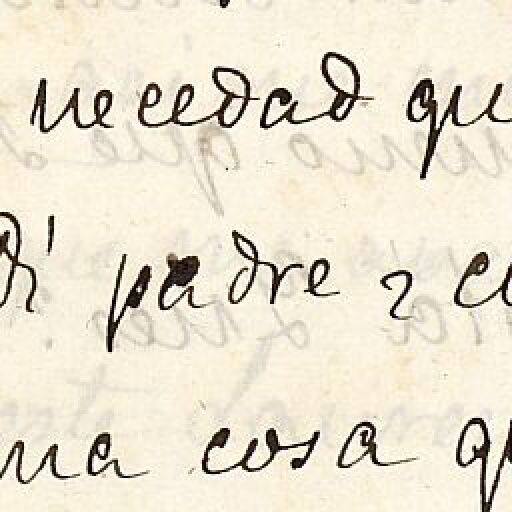 necedad qu
di padre
ma cosa q